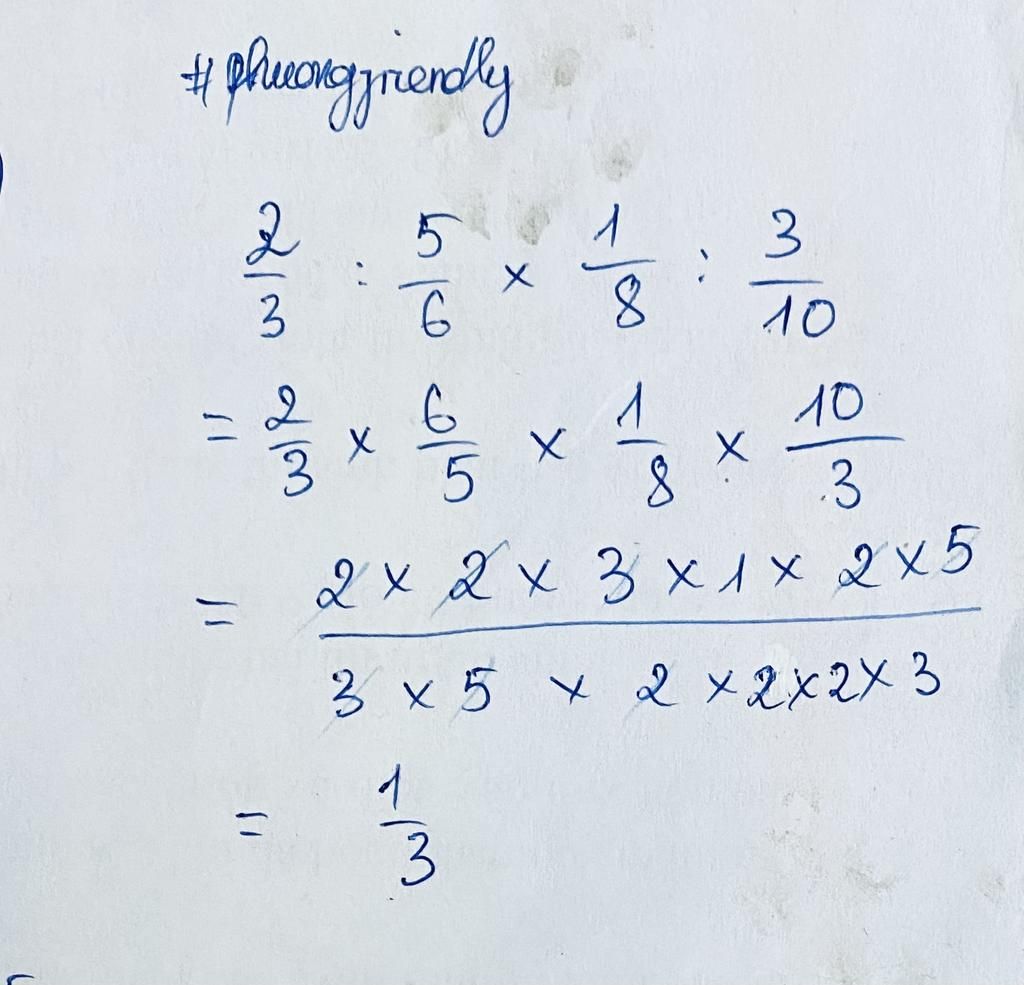 #phuongfriendly
2/3 : 5/6 × 1/8 : 3/10
= 2/3 × 6/5 × 1/8 × 10/3
= (2 × 2 × 3 × 1 × 2 × 5)/(3 × 5 × 2 × 2 × 2 × 3)
= 1/3